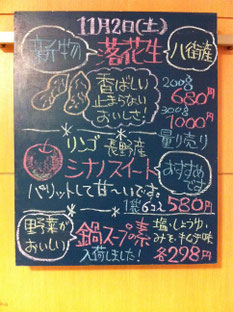 11月2日(土)
新物 落花生 八街産
香ばしい 200g
止まらない 680円
おいしさ! 300g
1000円
量り売り
リンゴ 長野産
シナノスイート おすすめです
パリッとして甘〜いです。
1袋6コ入 580円
野菜がおいしい 鍋スープの素 塩・しょうゆ
みそ・キムチ味
入荷しました! 各298円